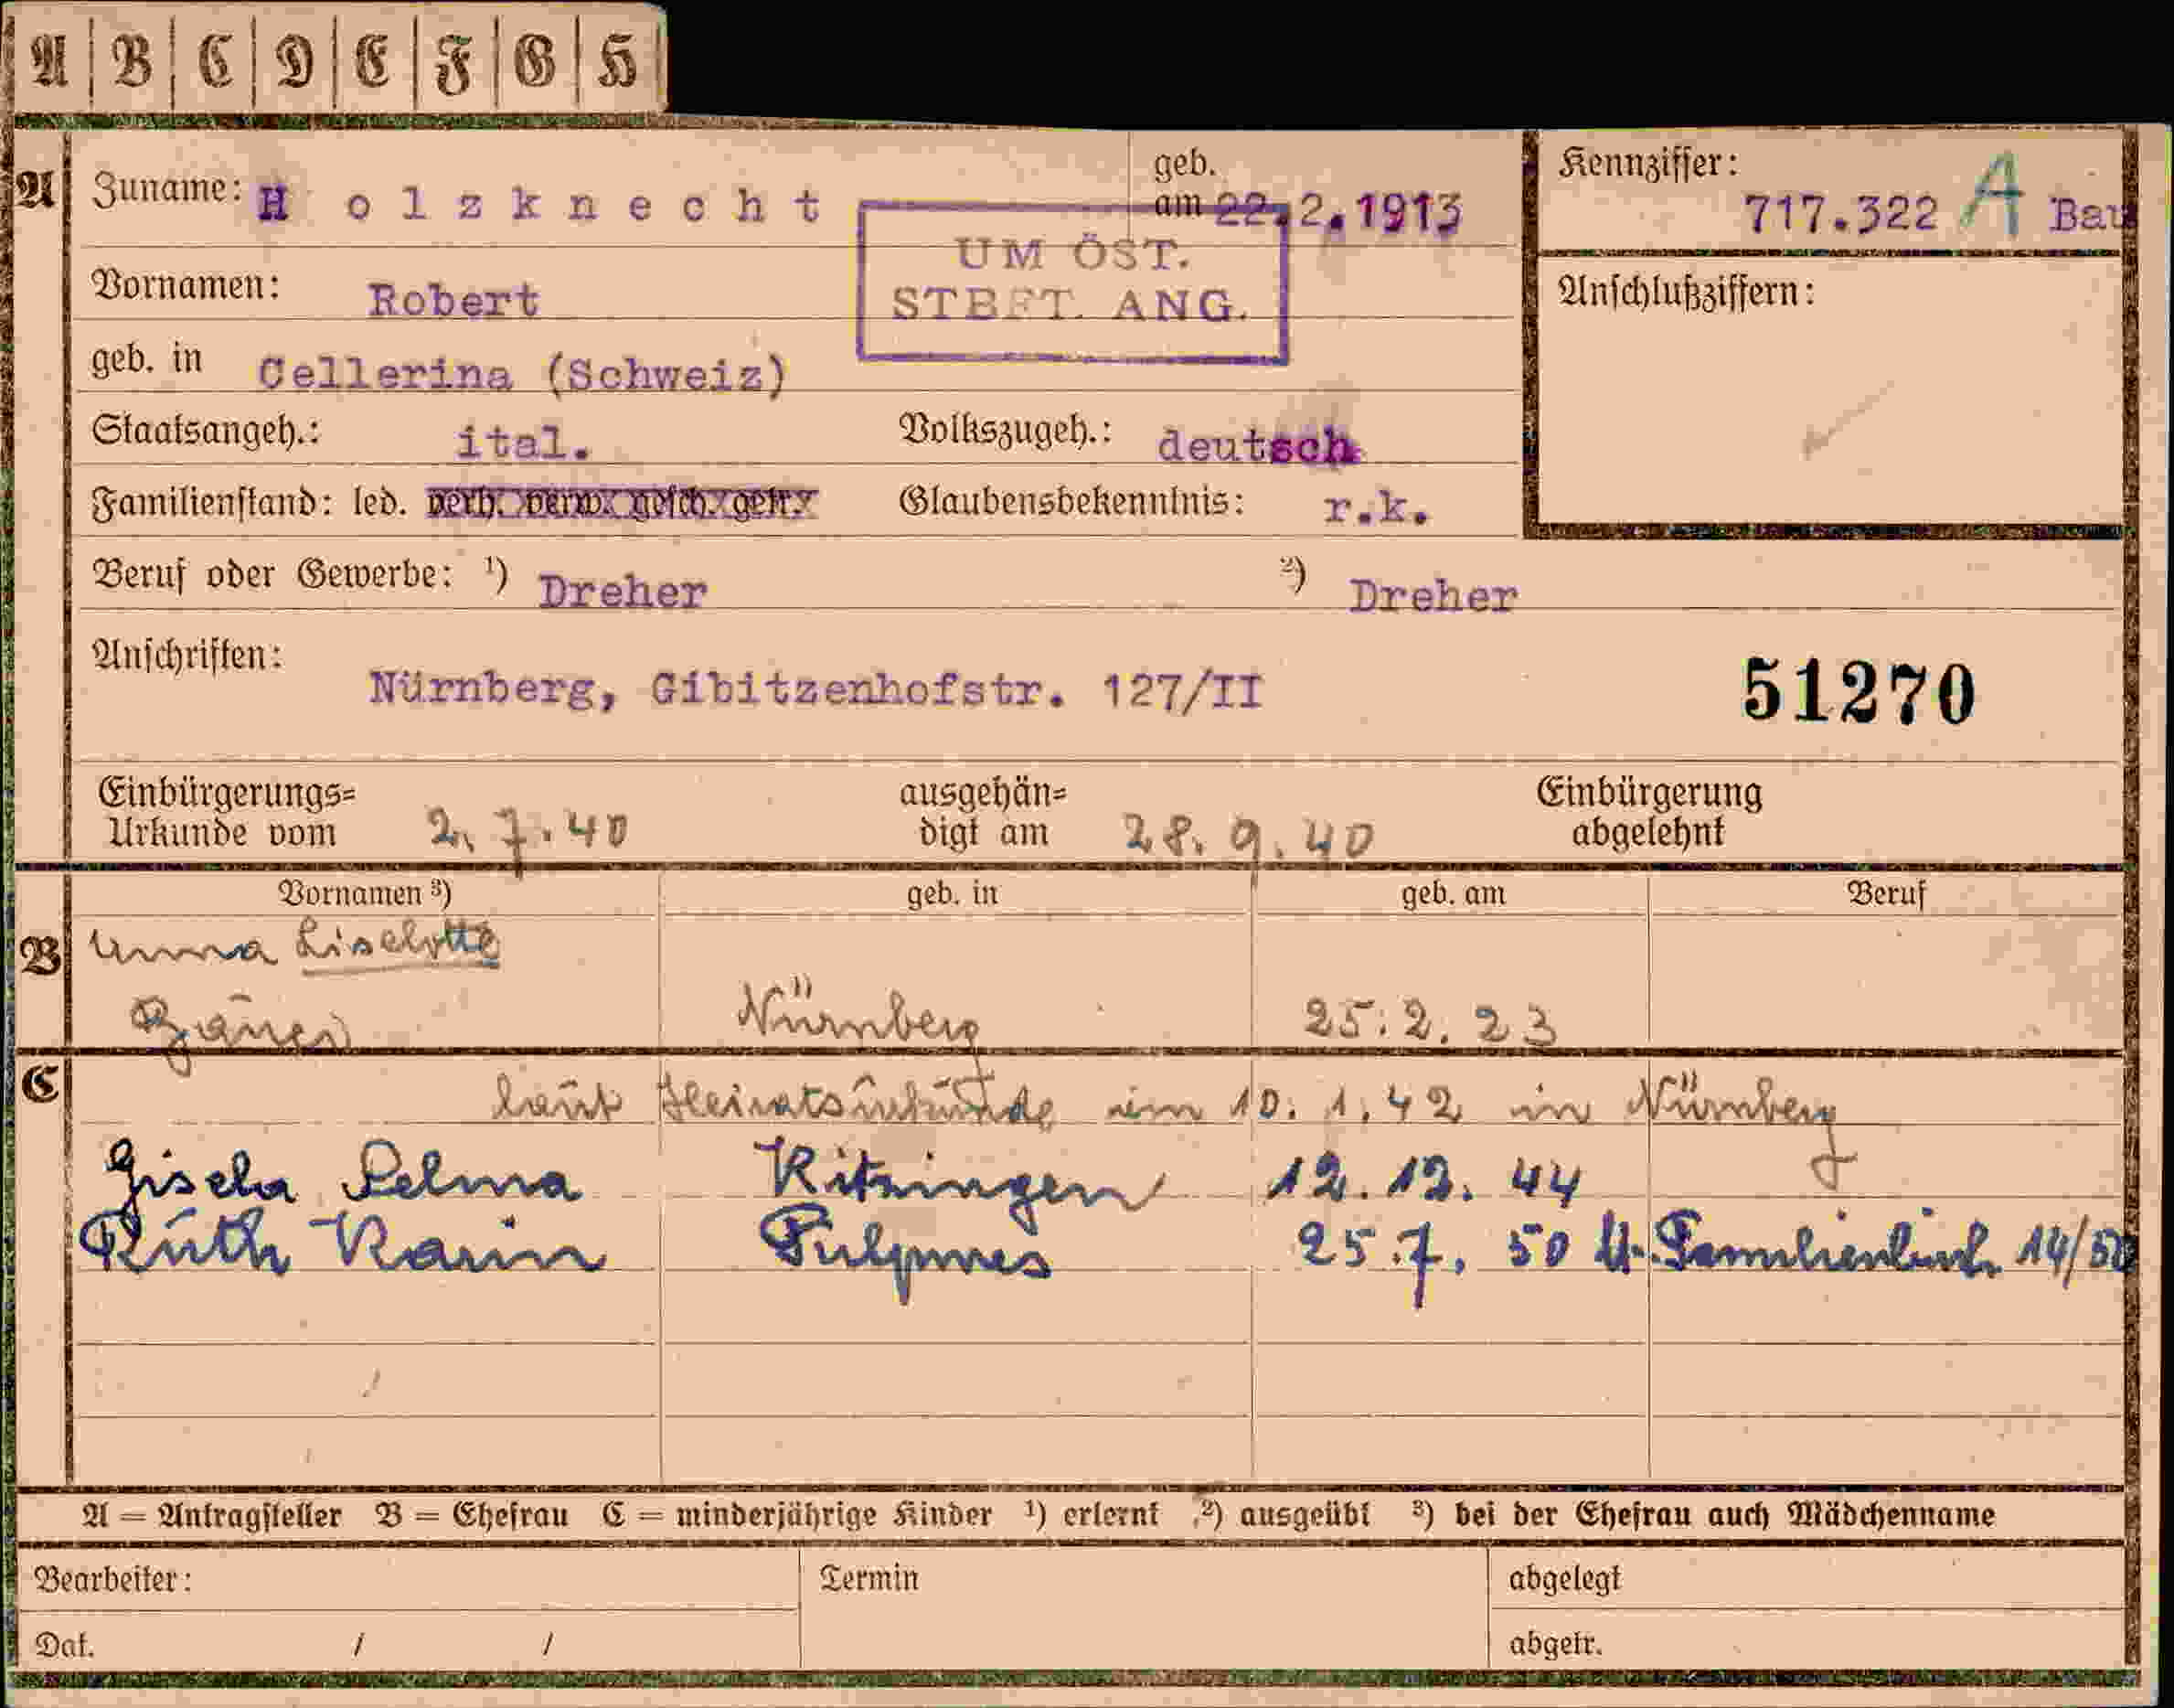 A B C D E F G H
A Zuname: Holzknecht geb. am 22.2.1913 Kennziffer: 717.322 A Bau
UM ÖST.
STBFT. ANG.
Vornamen: Robert
Anschlußziffern:
geb. in Cellerina (Schweiz)
Staatsangeh.: ital. Volkszugeh.: deutsch
Familienstand: led. verh. verw. gesch. getr. Glaubensbekenntnis: r.k.
Beruf oder Gewerbe: ¹) Dreher ²) Dreher
Anschriften: Nürnberg, Gibitzenhofstr. 127/II 51270
Einbürgerungs= ausgehän= Einbürgerung
Urkunde vom 2.7.40 digt am 28.9.40 abgelehnt
Vornamen ³) geb. in geb. am Beruf
B Anna Liselotte
Nürnberg 25.2.23
C laut Heiratsurkunde am 10.1.42 in Nürnberg
Gisela Selma Kitzingen 12.12.44
Ruth Karin Fulpmes 25.7.50 lt. Familienbuch 14/50
A = Antragsteller B = Ehefrau C = minderjährige Kinder ¹) erlernt ²) ausgeübt ³) bei der Ehefrau auch Mädchenname
Bearbeiter: Termin abgelegt
Dat. / / abgetr.